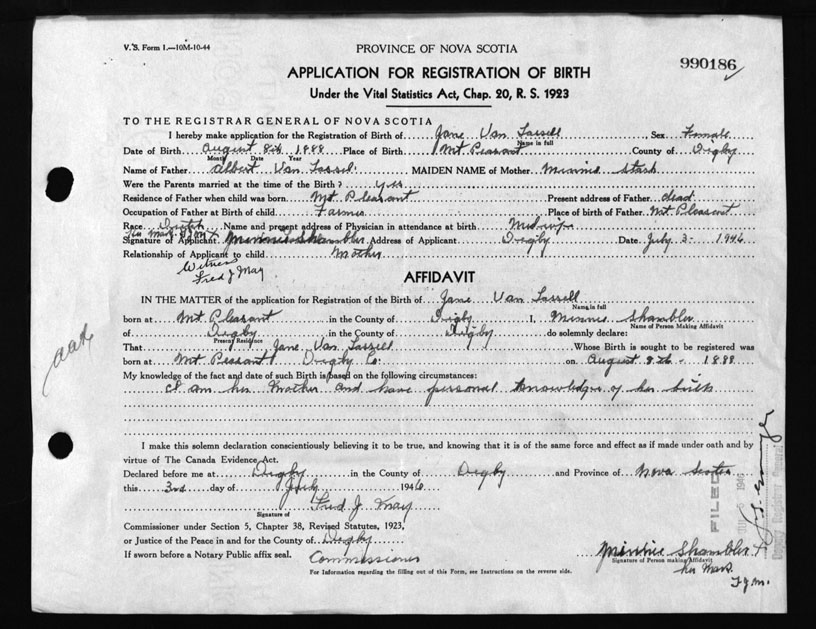 V.S. Form 1.—10M-10-44
PROVINCE OF NOVA SCOTIA
990186
APPLICATION FOR REGISTRATION OF BIRTH
Under the Vital Statistics Act, Chap. 20, R. S. 1923
TO THE REGISTRAR GENERAL OF NOVA SCOTIA
I hereby make application for the Registration of Birth of Jane Van Tassell Sex Female
Name in full
Date of Birth August 8th 1888 Place of Birth Mt Peasant County of Digby
Month Date Year
Name of Father Albert Van Tassel MAIDEN NAME of Mother Minnie Stark
Were the Parents married at the time of the Birth? yes
Residence of Father when child was born Mt. Pleasant Present address of Father dead
Occupation of Father at Birth of child Farmer Place of birth of Father Mt. Pleasant
Race Dutch Name and present address of Physician in attendance at birth Midwife
her mark
Signature of Applicant Minnie Shambler Address of Applicant Digby Date July 3- 1946
Relationship of Applicant to child Mother
Witness
Fred J May
AFFIDAVIT
IN THE MATTER of the application for Registration of the Birth of Jane Van Tassell
Name in full
born at Mt Pleasant in the County of Digby I, Minnie Shambler
Name of Person Making Affidavit
of Digby in the County of Digby do solemnly declare:
Present Residence
That Jane Van Tassell Whose Birth is sought to be registered was
born at Mt Peasant Digby Co. on August 8th - 1888
My knowledge of the fact and date of such Birth is based on the following circumstances:
I am her Mother and have personal knowledge of her birth
I make this solemn declaration conscientiously believing it to be true, and knowing that it is of the same force and effect as if made under oath and by
virtue of The Canada Evidence Act.
Declared before me at Digby in the County of Digby and Province of Nova Scotia
this 3rd day of July 1946
Fred J. May
Signature of
Commissioner under Section 5, Chapter 38, Revised Statutes, 1923,
or Justice of the Peace in and for the County of Digby
If sworn before a Notary Public affix seal. Commissioner
Minnie Shambler X
Signature of Person making Affidavit
her Mark
F.J.M.
For Information regarding the filling out of this Form, see Instructions on the reverse side.
FILED
1946
Deputy Registrar General